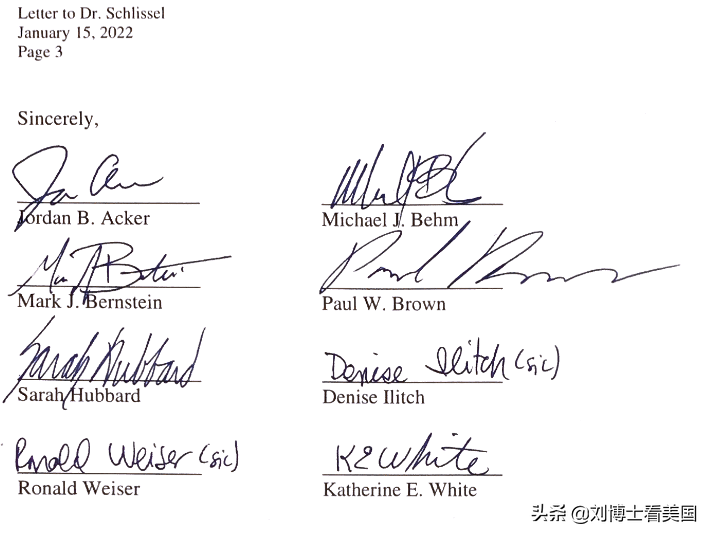 Letter to Dr. Schlissel
January 15, 2022
Page 3
Sincerely,
Jordan B. Acker
Michael J. Behm
Mark J. Bernstein
Paul W. Brown
Sarah Hubbard
Sarah Hubbard
Denise Ilitch (sic)
Denise Ilitch
Ronald Weiser (sic)
Ronald Weiser
K E White
Katherine E. White
头条 @刘博士看美国